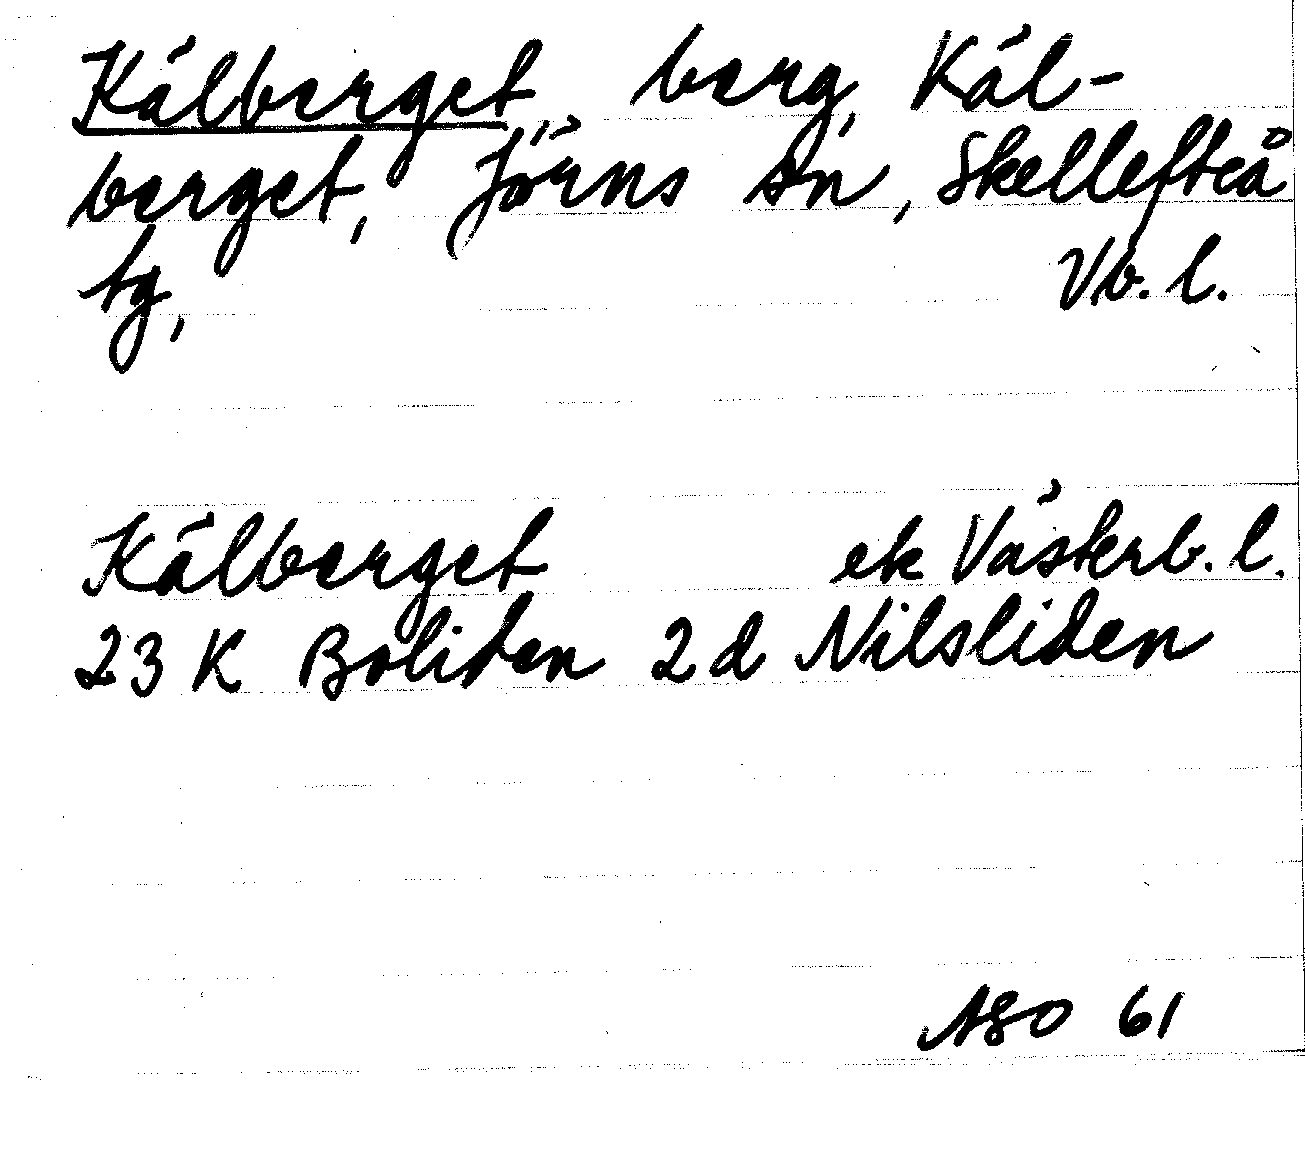 Kälberget, berg, Käl-
berget, Jörns sn, Skellefteå
tg, Vb. l.
Kälberget ek Västerb. l.
23 K Boliden 2 d Nilsliden
ASO 61